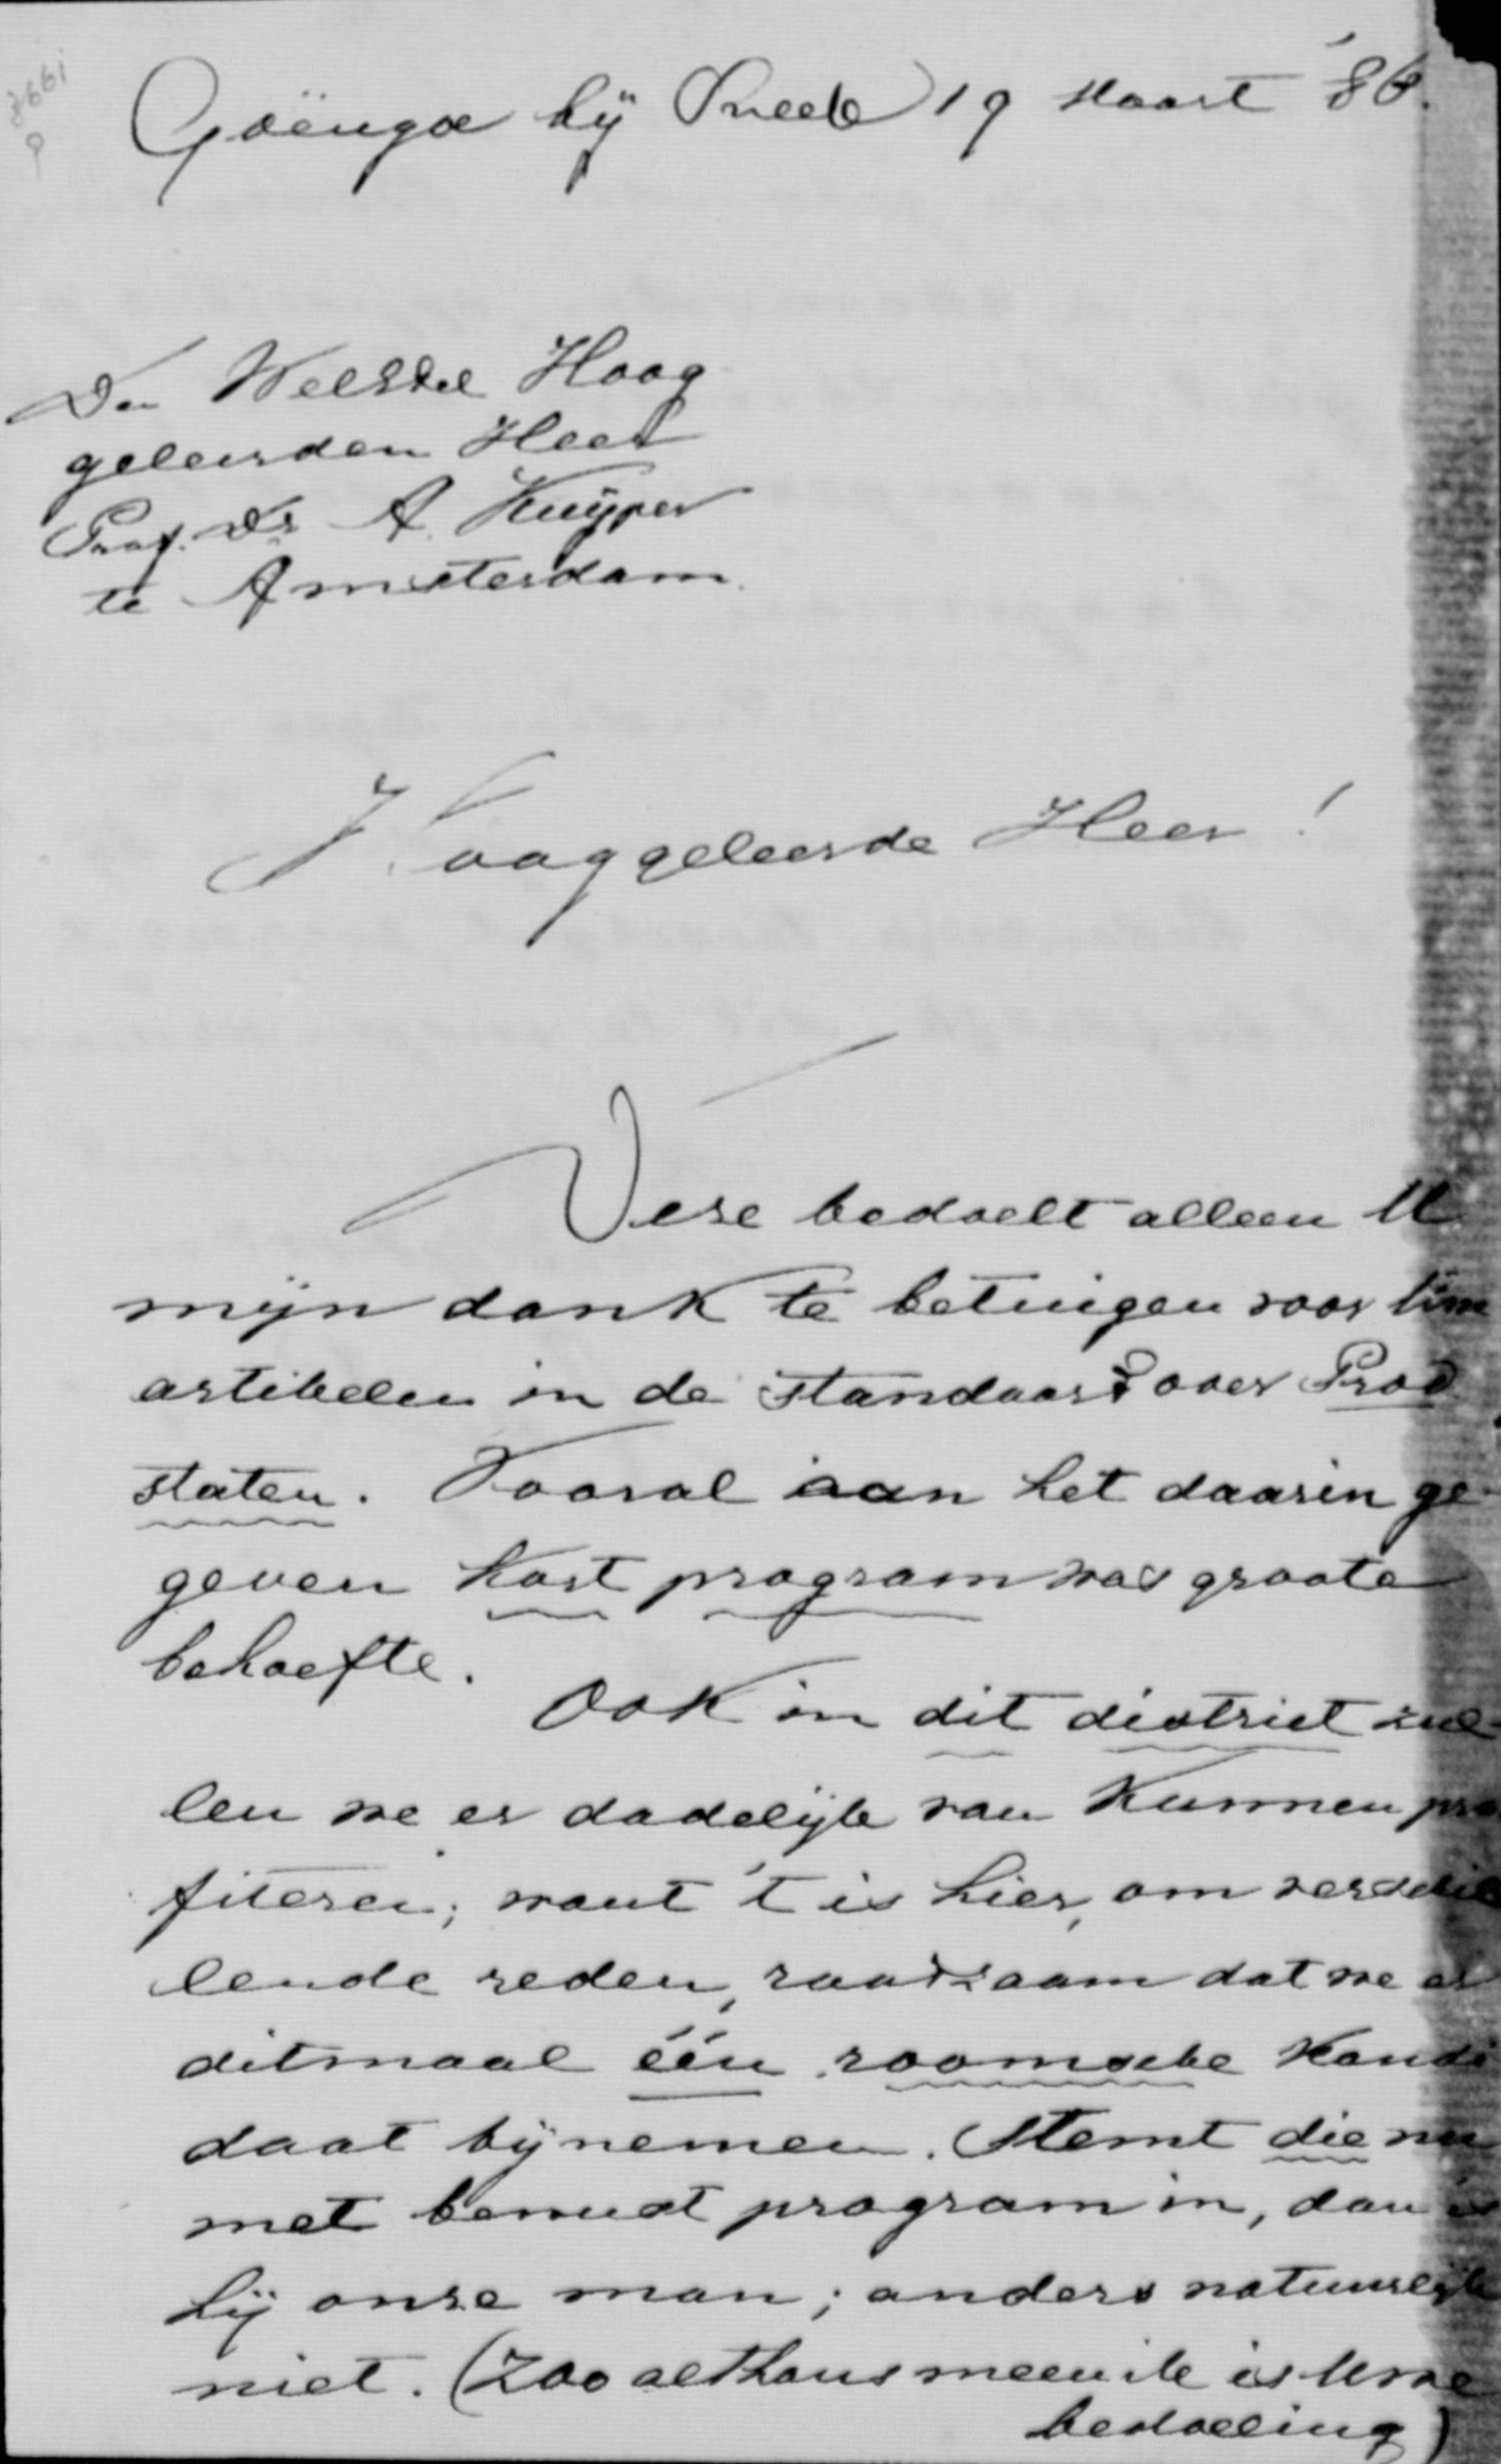 Goënga bij Sneek 19 Maart '86.
Den WelEdel Hoog
geleerden Heer
Prof. Dr A. Kuyper
te Amsterdam.
Hooggeleerde Heer!
Deze bedoelt alleen U
mijn dank te betuigen voor Uwe
artikelen in de Standaard over Prov
staten. Vooral aan het daarin ge-
geven kort program was groote
behoefte.
Ook in dit district zul-
len we er dadelijk van kunnen pro
fiteren; want 't is hier, om verschil
lende reden, raadzaam dat we er
ditmaal één roomsche kandi
daat bijnemen. Stemt die nu
met bewust program in, dan is
hij onze man; anders natuurlijk
niet. (Zoo althans meen ik is Uwe
bedoeling)